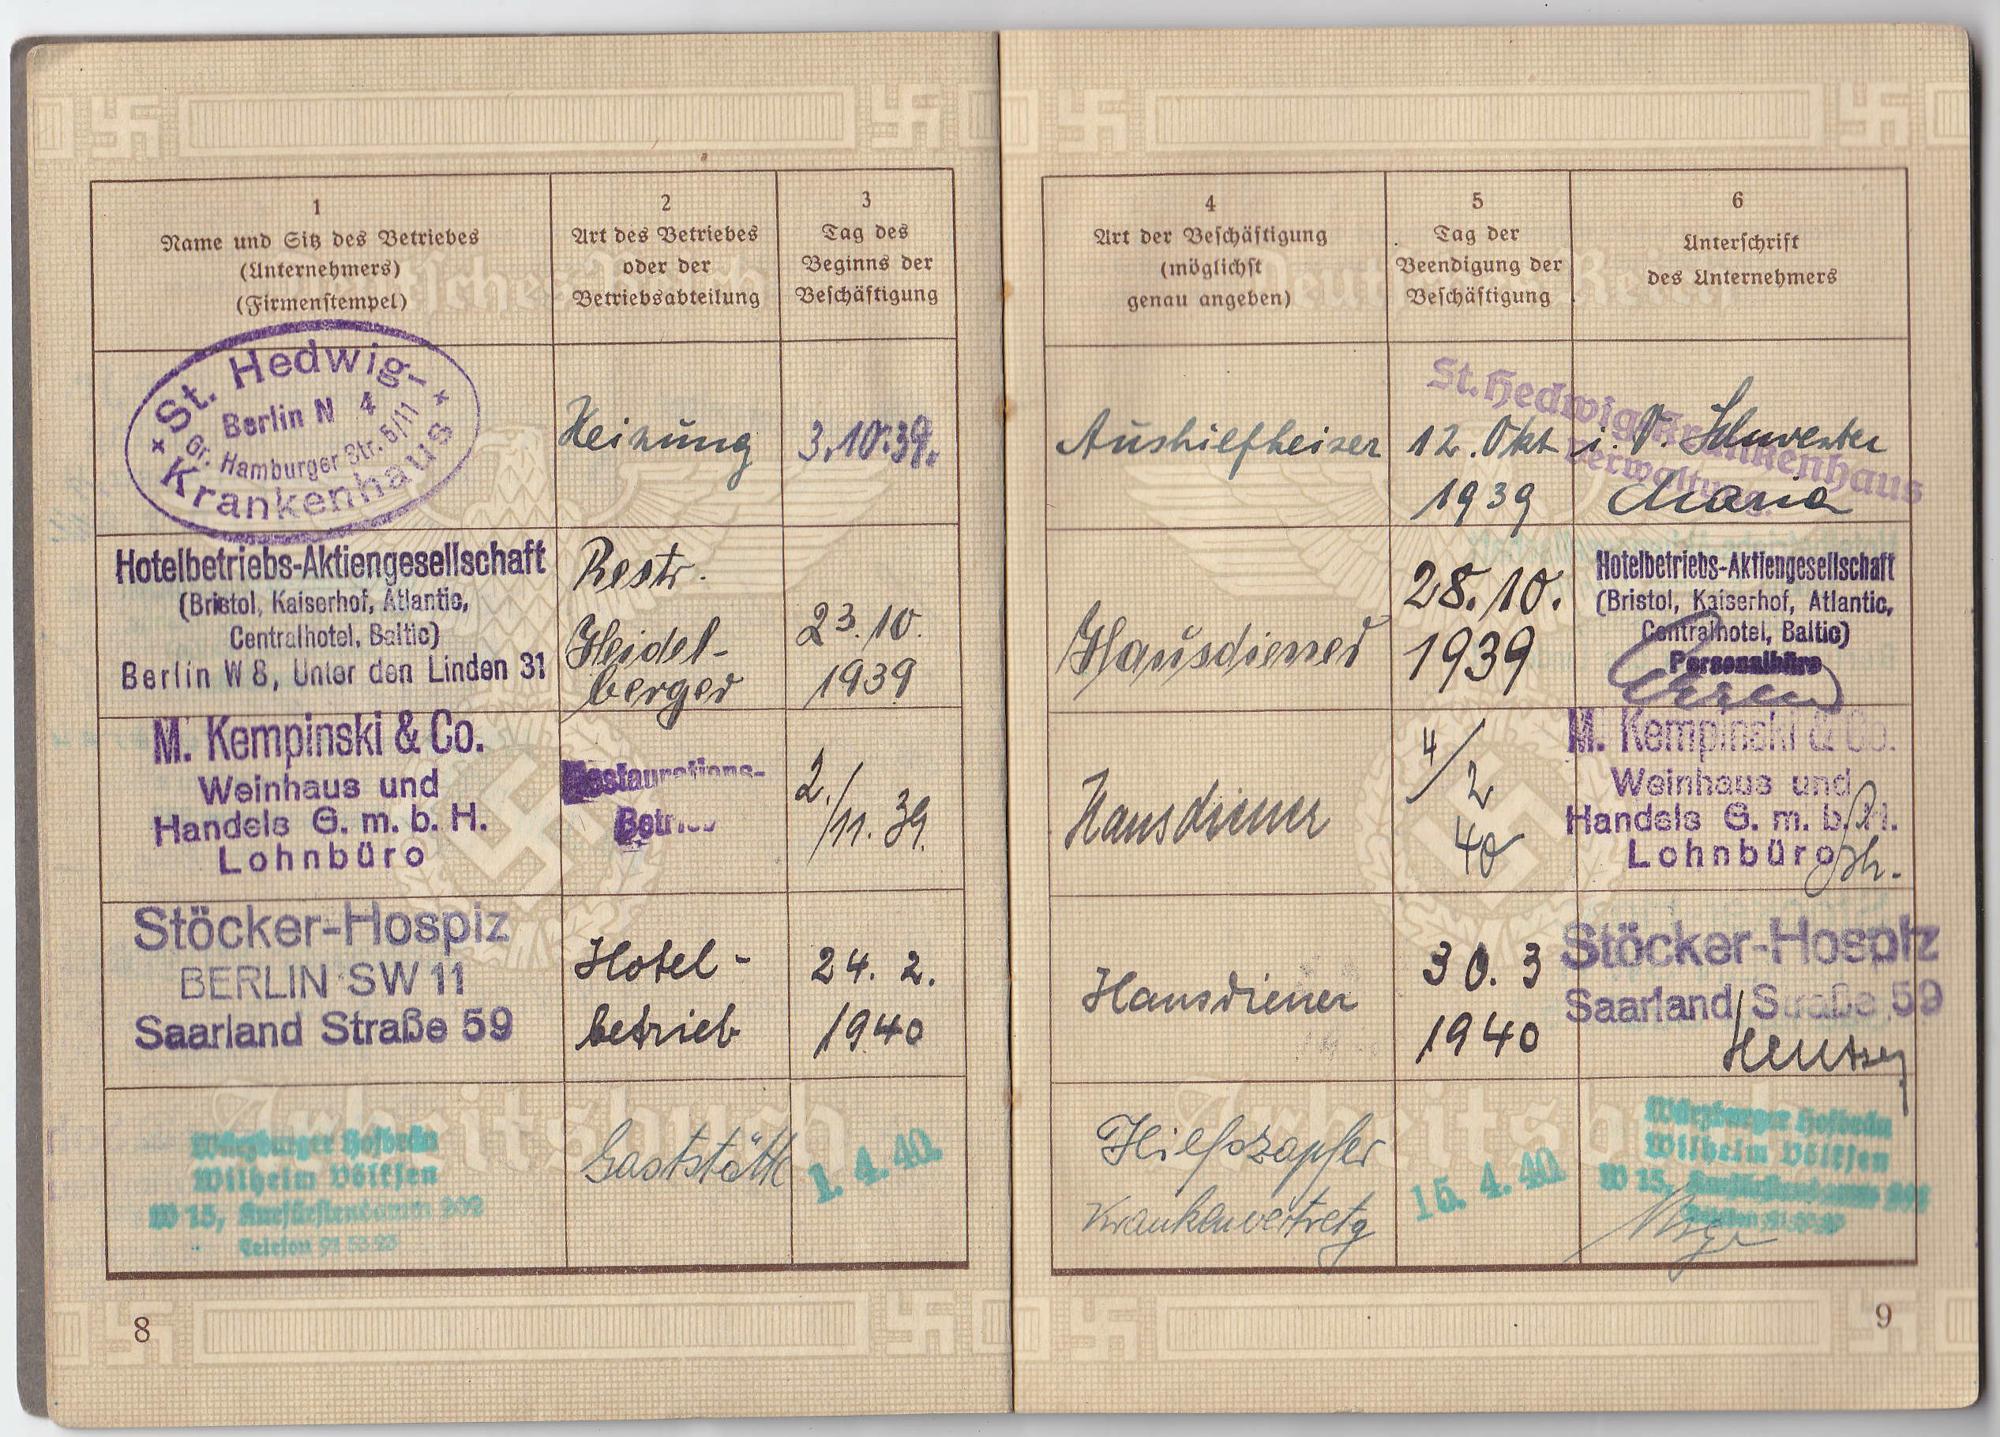 1
Name und Sitz des Betriebes
(Unternehmers)
(Firmenstempel)
2
Art des Betriebes
oder der
Betriebsabteilung
3
Tag des
Beginns der
Beschäftigung
St. Hedwig-
Berlin N 4
Gr. Hamburger Str. 5/11
Krankenhaus
Heizung
3.10.39.
Hotelbetriebs-Aktiengesellschaft
(Bristol, Kaiserhof, Atlantic,
Centralhotel, Baltic)
Berlin W 8, Unter den Linden 31
Restr.
Heidel-
berger
23.10.
1939
M. Kempinski & Co.
Weinhaus und
Handels G. m. b. H.
Lohnbüro
Restaurations-
Betrieb
2./11. 39.
Stöcker-Hospiz
BERLIN SW 11
Saarland Straße 59
Hotel-
betrieb
24. 2.
1940
Würzburger Hofbräu
Wilhelm Völtsen
W 15, Kurfürstendamm 202
Telefon 91
Gaststätte
1. 4. 40.
Arbeitsbuch
8
4
Art der Beschäftigung
(möglichst
genau angeben)
5
Tag der
Beendigung der
Beschäftigung
6
Unterschrift
des Unternehmers
Aushilfheizer
12. Okt
1939
St. Hedwig-Krankenhaus
Verwaltung
i. V. Schwester
Maria
Hausdiener
28.10.
1939
Hotelbetriebs-Aktiengesellschaft
(Bristol, Kaiserhof, Atlantic,
Centralhotel, Baltic)
Personalbüro
Hausdiener
4/2
40
M. Kempinski & Co.
Weinhaus und
Handels G. m. b. H.
Lohnbüro
Hausdiener
30. 3
1940
Stöcker-Hospiz
Saarland Straße 59
Hilfszapfer
Krankenvertretg
15. 4. 40.
Würzburger Hofbräu
Wilhelm Völtsen
W 15, Kurfürstendamm 202
Arbeitsbuch
9